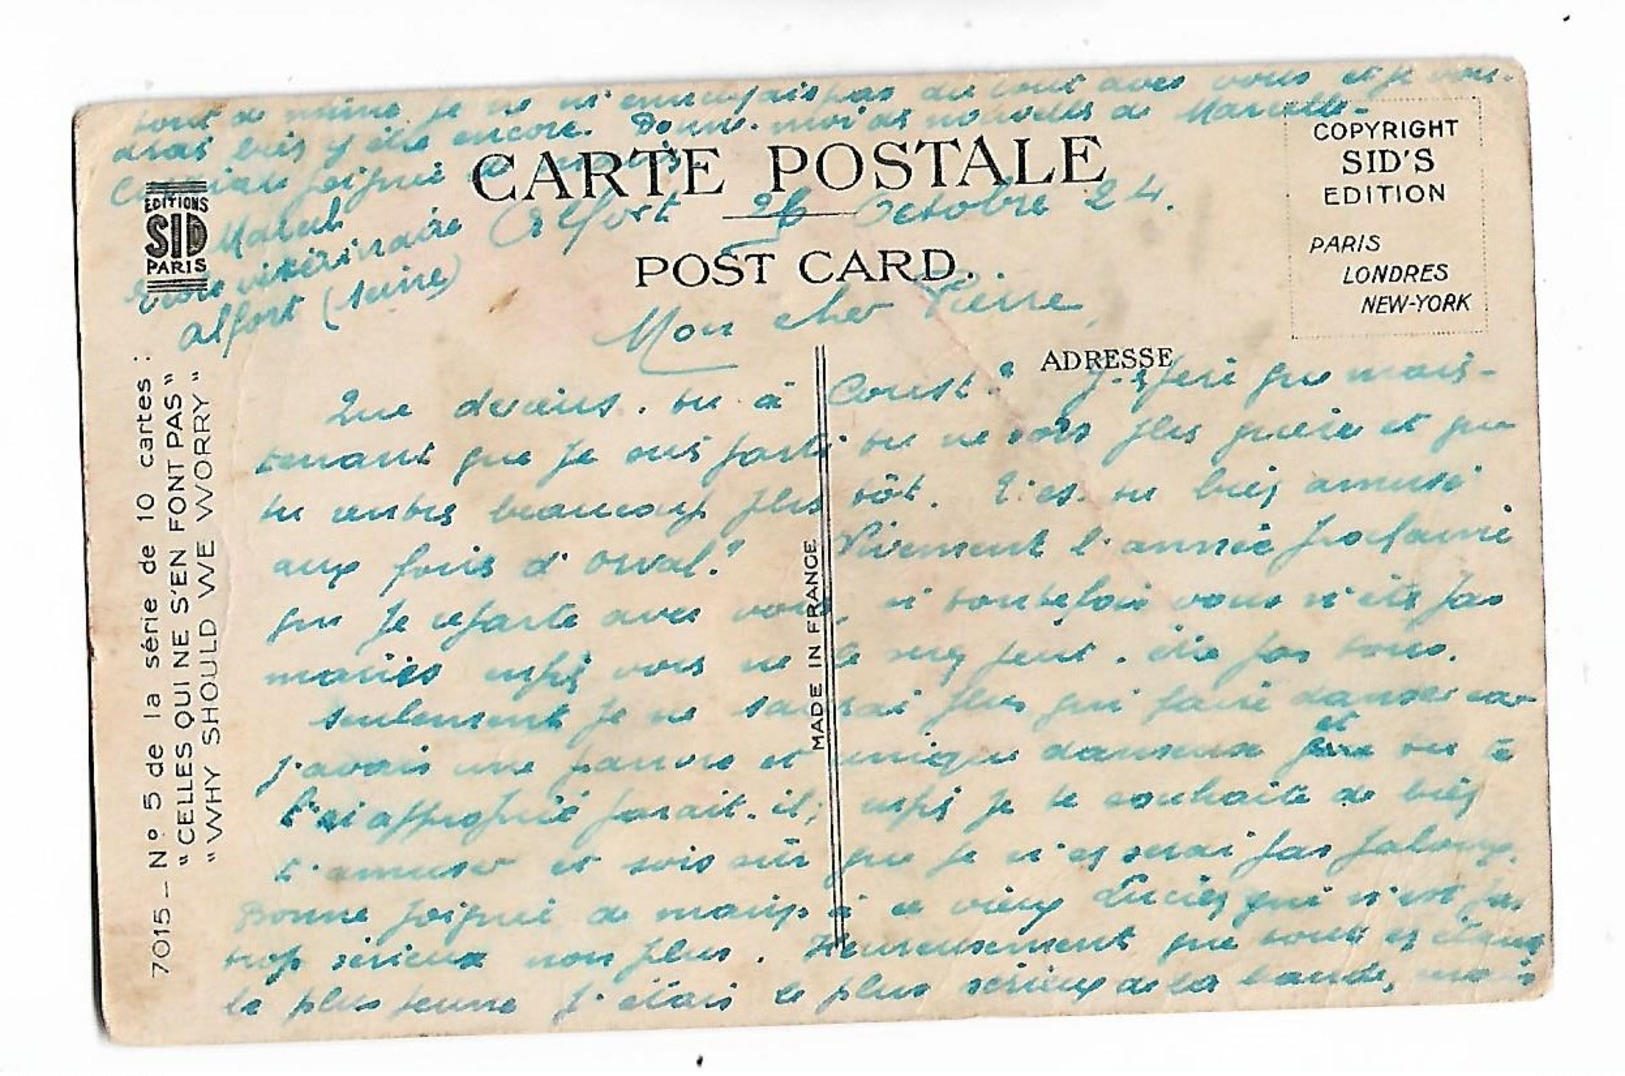 CARTE POSTALE
POST CARD.
ADRESSE
COPYRIGHT
SID'S
EDITION
PARIS
LONDRES
NEW-YORK
EDITIONS
SID
PARIS
7015 _ Nº 5 de la série de 10 cartes :
"CELLES QUI NE S'EN FONT PAS"
"WHY SHOULD WE WORRY"
MADE IN FRANCE
Alfort 26 Octobre 24.
Mon cher Pierre,
Que deviens-tu à Coust? J'espère que main-
tenant que je suis parti tu ne sors plus guère et que
tu rentres beaucoup plus tôt. T'es-tu bien amusé
aux foires d'Orval? Vivement l'année prochaine
que je reparte avec vous, si toutefois vous n'êtes pas
mariés enfin vous ne le serez peut-être pas tous.
Seulement je ne saurai plus qui faire danser car
j'avais une pauvre et unique danseuse et tu te
l'es appropriée parait-il; enfin je te souhaite de bien
t'amuser et sois sûr que je n'en serai pas jaloux.
Bonne poignée de main à ce vieux Lucien qui n'est pas
trop sérieux non plus. Heureusement que tout en étant
le plus jeune j'étais le plus sérieux de la bande, mais
tout de même je ne m'ennuyais pas du tout avec vous et je vou-
drais bien y être encore. Donne-moi des nouvelles de Marcelle-
Cordiale poignée de mains.
Marcel
Ecole vétérinaire
Alfort (Seine)